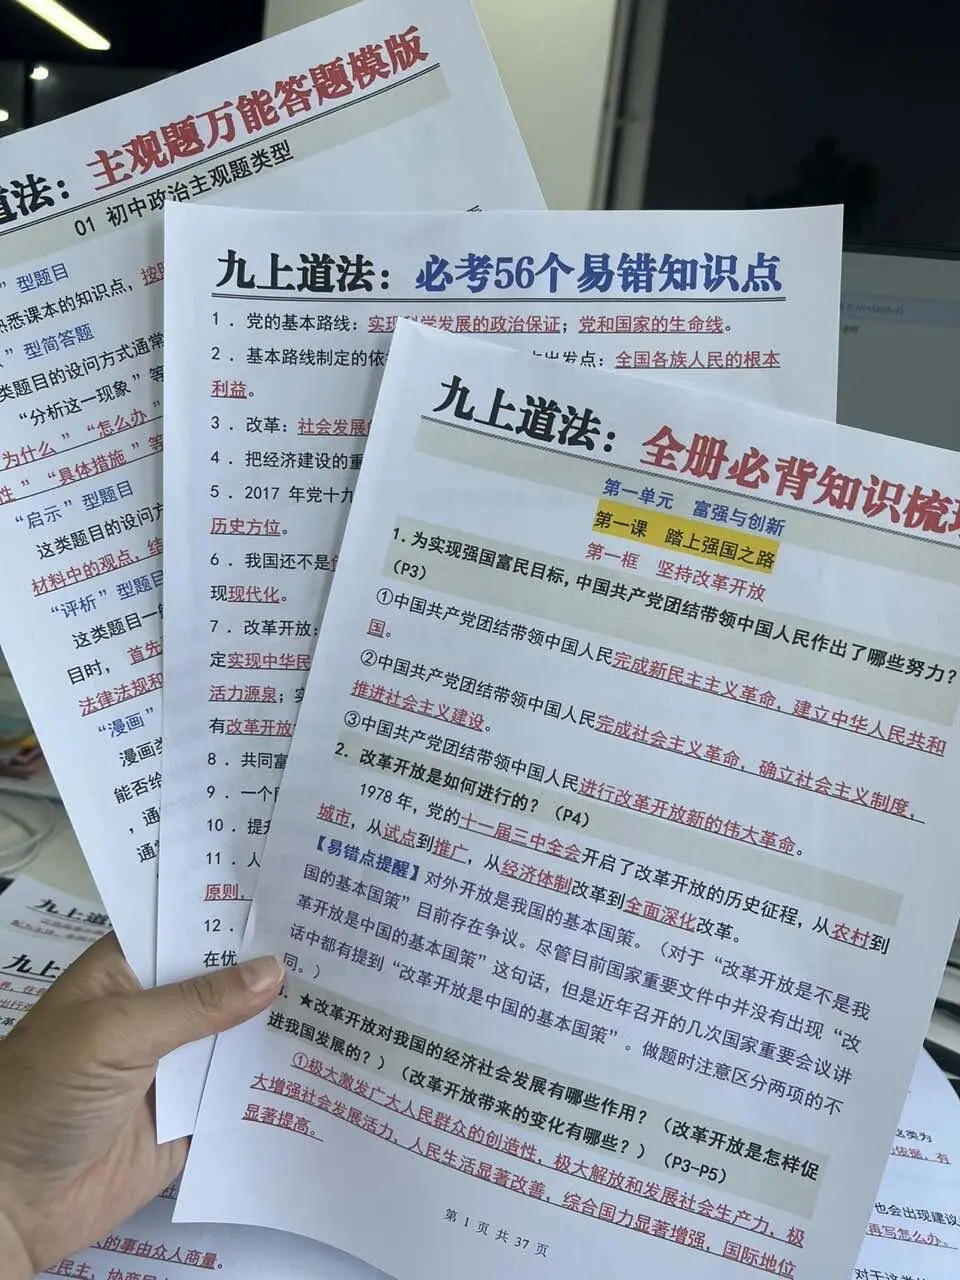 道法：主观题万能答题模版
01 初中政治主观题类型
”型题目
熟悉课本的知识点，
”型简答题
类题目的设问方式通常
“分析这一现象”等
为什么”“怎么办”
性”“具体措施”等
“启示”型题目
这类题目的设问方
材料中的观点，结
“评析”型题目
这类题目一
目时，首先
法律法规和
“漫画”
漫画
能否给
，通
通
九上道法：必考56个易错知识点
1．党的基本路线：实现科学发展的政治保证；党和国家的生命线。
2．基本路线制定的依 出发点：全国各族人民的根本
利益。
3．改革：社会发展
4．把经济建设的重
5．2017 年党十九
历史方位。
6．我国还不是
现现代化。
7．改革开放：
定实现中华民
活力源泉；实
有改革开放
8．共同富
9．一个
10．提升
11．人
原则，
12．
在优
九上道法：全册必背知识梳理
第一单元 富强与创新
第一课 踏上强国之路
第一框 坚持改革开放
1.为实现强国富民目标，中国共产党团结带领中国人民作出了哪些努力？
(P3)
①中国共产党团结带领中国人民完成新民主主义革命，建立中华人民共和
国。
②中国共产党团结带领中国人民完成社会主义革命，确立社会主义制度，
推进社会主义建设。
③中国共产党团结带领中国人民进行改革开放新的伟大革命。
2．改革开放是如何进行的？(P4)
1978 年，党的十一届三中全会开启了改革开放的历史征程，从农村到
城市，从试点到推广，从经济体制改革到全面深化改革。
【易错点提醒】对外开放是我国的基本国策。（对于“改革开放是不是我
国的基本国策”目前存在争议。尽管目前国家重要文件中并没有出现“改
革开放是中国的基本国策”这句话，但是近年召开的几次国家重要会议讲
话中都有提到“改革开放是中国的基本国策”。做题时注意区分两项的不
同。）
．★改革开放对我国的经济社会发展有哪些作用？（改革开放是怎样促
进我国发展的？）（改革开放带来的变化有哪些？）(P3-P5)
①极大激发广大人民群众的创造性，极大解放和发展社会生产力，极
大增强社会发展活力，人民生活显著改善，综合国力显著增强，国际地位
显著提高。
第 1 页 共 37 页
九上道
九上
的事由众人商量。
这类为
依据，有
也会出现建议
再写怎么办。
对于这类